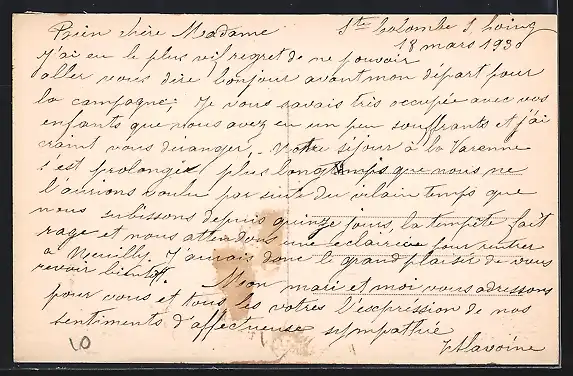 Bien chère Madame
Ste Colombe s/ Loing
18 mars 1930
J'ai eu le plus vif regret de ne pouvoir
aller vous dire bonjour avant mon départ pour
la campagne. Je vous savais très occupée avec vos
enfants que vous avez eu un peu souffrants et j'ai
craint vous déranger. Notre séjour à la Varenne
s'est prolongé plus longtemps que nous ne
l'aurions voulu par suite du vilain temps que
nous subissons depuis quinze jours, la tempête fait
rage et nous attendons une éclaircie pour rentrer
à Neuilly. J'aurais donc le grand plaisir de vous
revoir bientôt. Mon mari et moi vous adressons
pour vous et tous les vôtres l'expréssion de nos
sentiments d'affectueuse sympathie
10